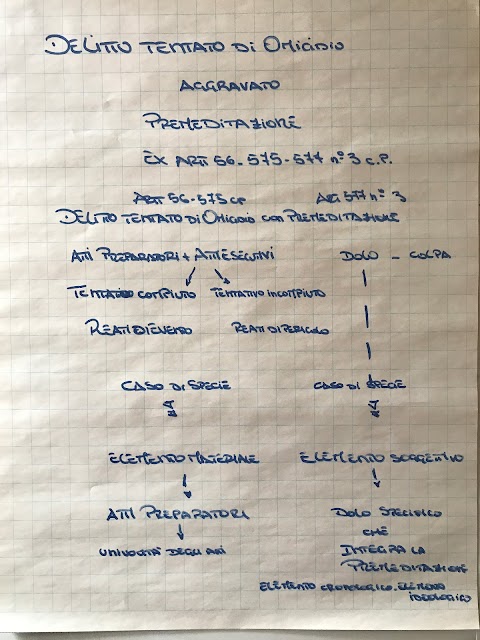 DELITTO TENTATO DI OMICIDIO
AGGRAVATO
PREMEDITAZIONE
EX ARTT 56-575-577 n°3 c.p.
ARTT 56-575 cp ART 577 n° 3
DELITTO TENTATO DI OMICIDIO CON PREMEDITAZIONE
ATTI PREPARATORI + ATTI ESECUTIVI DOLO - COLPA
TENTATIVO COMPIUTO TENTATIVO INCOMPIUTO
REATI DI EVENTO REATI DI PERICOLO
CASO DI SPECIE CASO DI SPECIE
ELEMENTO MATERIALE ELEMENTO SOGGETTIVO
ATTI PREPARATORI DOLO SPECIFICO
CHE
UNIVOCITÀ DEGLI ATTI INTEGRA LA
PREMEDITAZIONE
ELEMENTO CRONOLOGICO. ELEMENTO
IDEOLOGICO